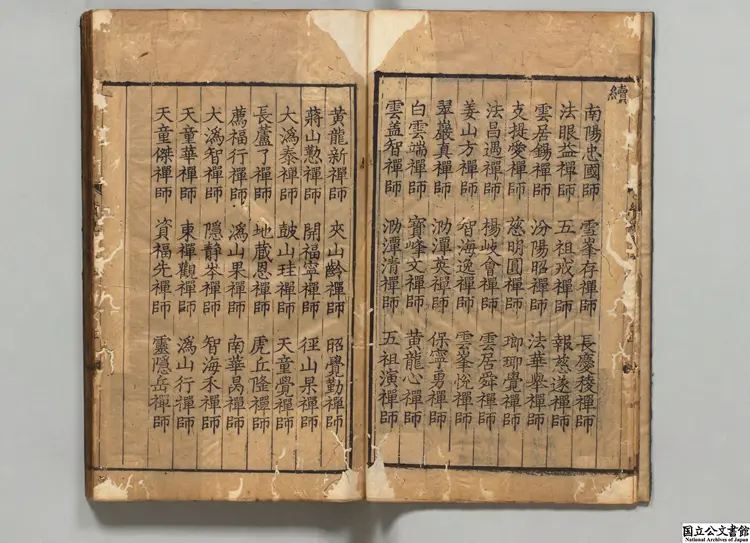 續
南陽忠國師 雪峯存禪師 長慶稜禪師
法眼益禪師 五祖戒禪師 報慈遂禪師
雲居錫禪師 汾陽昭禪師 法華舉禪師
支提愛禪師 慈明圓禪師 瑯琊覺禪師
法昌遇禪師 楊岐會禪師 雲居舜禪師
姜山方禪師 智海逸禪師 雲峯悅禪師
翠巖真禪師 泐潭英禪師 保寧勇禪師
白雲端禪師 寶峰文禪師 黃龍心禪師
雲盖智禪師 泐潭清禪師 五祖演禪師
黃龍新禪師 夾山齡禪師 昭覺勤禪師
蔣山懃禪師 開福寧禪師 徑山杲禪師
大溈泰禪師 皷山珪禪師 天童覺禪師
長蘆了禪師 地蔵恩禪師 虎丘隆禪師
薦福行禪師 溈山果禪師 南華昺禪師
大溈智禪師 隱静岑禪師 智海禾禪師
天童華禪師 東禪觀禪師 溈山行禪師
天童傑禪師 資福先禪師 靈隱岳禪師
国立公文書館
National Archives of Japan